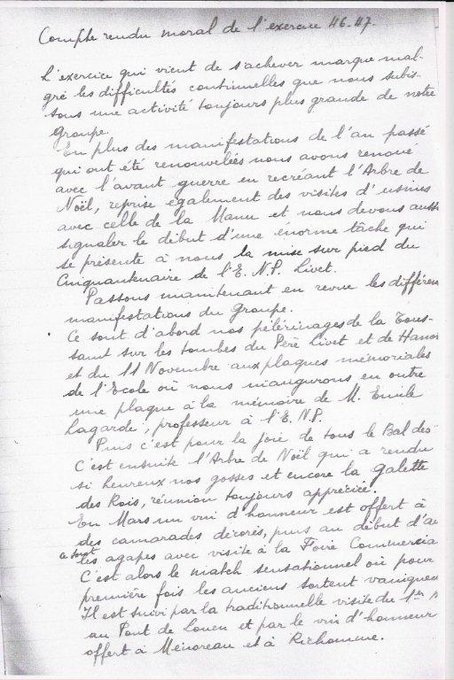 Compte rendu moral de l'exercice 46.47.
L'exercice qui vient de s'achever marque mal-
gré les difficultés continuelles que nous subis-
sons une activité toujours plus grande de notre
Groupe.
En plus des manifestations de l'an passé
qui ont été renouvelées nous avons renoué
avec l'avant guerre en recréant l'Arbre de
Noël, reprise également des visites d'usines
avec celle de la Manu et nous devons auss
signaler le début d'une énorme tâche qui
se présente à nous la mise sur pied du
Cinquantenaire de l'E.N.P. Livet.
Passons maintenant en revue les différen
manifestations du Groupe.
Ce sont d'abord nos pélerinages de la Tous-
saint sur les tombes du Père Livet et de
et du 11 Novembre aux plaques mémoriales
de l'Ecole où nous inaugurons en outre
une plaque à la mémoire de M. Emile
Lagarde, professeur à l'E.N.P.
Puis c'est pour la joie de tous le Bal des
C'est ensuite l'Arbre de Noël qui a rendu
si heureux nos gosses et encore la galette
des Rois, réunion toujours appréciée.
En Mars un vin d'honneur est offert à
des camarades décorés, puis au début d'a
les agapes avec visite à la Foire Commercia
C'est alors le match sensationnel où pour
première fois les anciens sortent vainqueu
Il est suivi par la traditionnelle visite du 1er
au Pont de Louen et par le vin d'honneur
offert à Ménoreau et à Richomme.